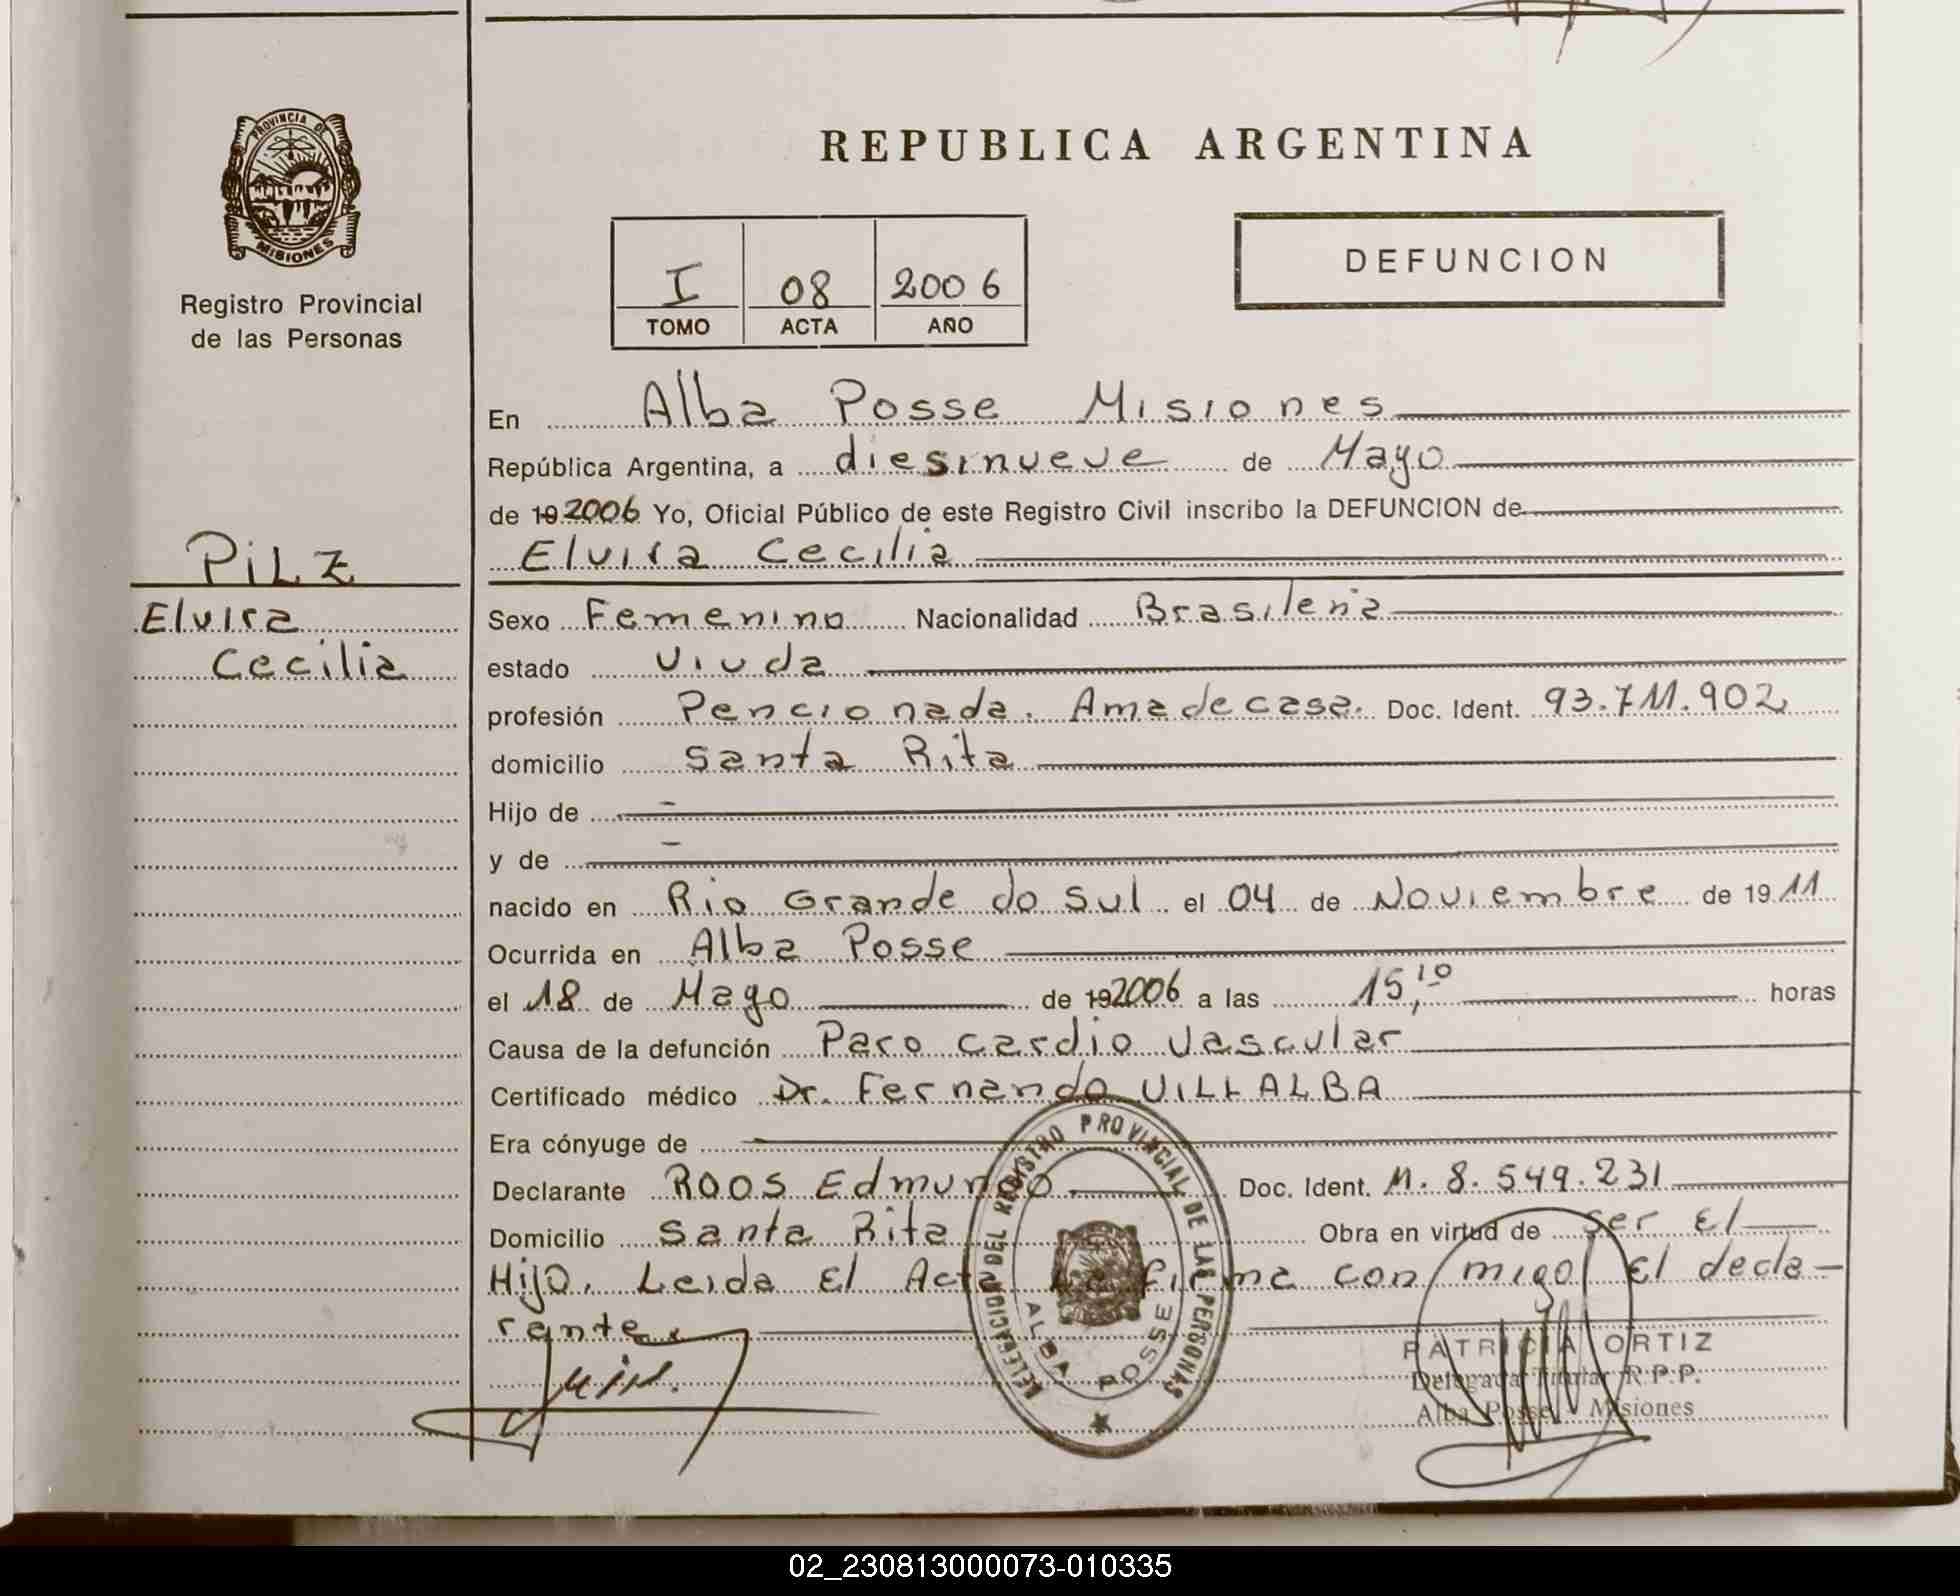 PROVINCIA DE
MISIONES
Registro Provincial
de las Personas
REPUBLICA ARGENTINA
I 08 2006
TOMO ACTA AÑO
DEFUNCION
En Alba Posse Misiones
República Argentina, a diesinueve de Mayo
de 19 2006 Yo, Oficial Público de este Registro Civil inscribo la DEFUNCION de
Elvira Cecilia
PILZ
Elvira
Cecilia
Sexo Femenino Nacionalidad Brasileña
estado Viuda
profesión Pencionada. Ama de casa. Doc. Ident. 93.711.902
domicilio Santa Rita
Hijo de -
y de -
nacido en Rio Grande do Sul el 04 de Noviembre de 19 11
Ocurrida en Alba Posse
el 18 de Mayo de 19 2006 a las 15,10 horas
Causa de la defunción Paro cardio vascular
Certificado médico Dr. Fernando VILLALBA
Era cónyuge de
Declarante ROOS Edmundo Doc. Ident. M. 8.549.231
Domicilio Santa Rita Obra en virtud de ser El
Hijo. Leida El Acta la firma con migo El decla-
rante.
DELEGACION DEL REGISTRO PROVINCIAL DE LAS PERSONAS
ALBA POSSE
PATRICIA ORTIZ
Delegada Titular R.P.P.
Alba Posse - Misiones
02_230813000073-010335